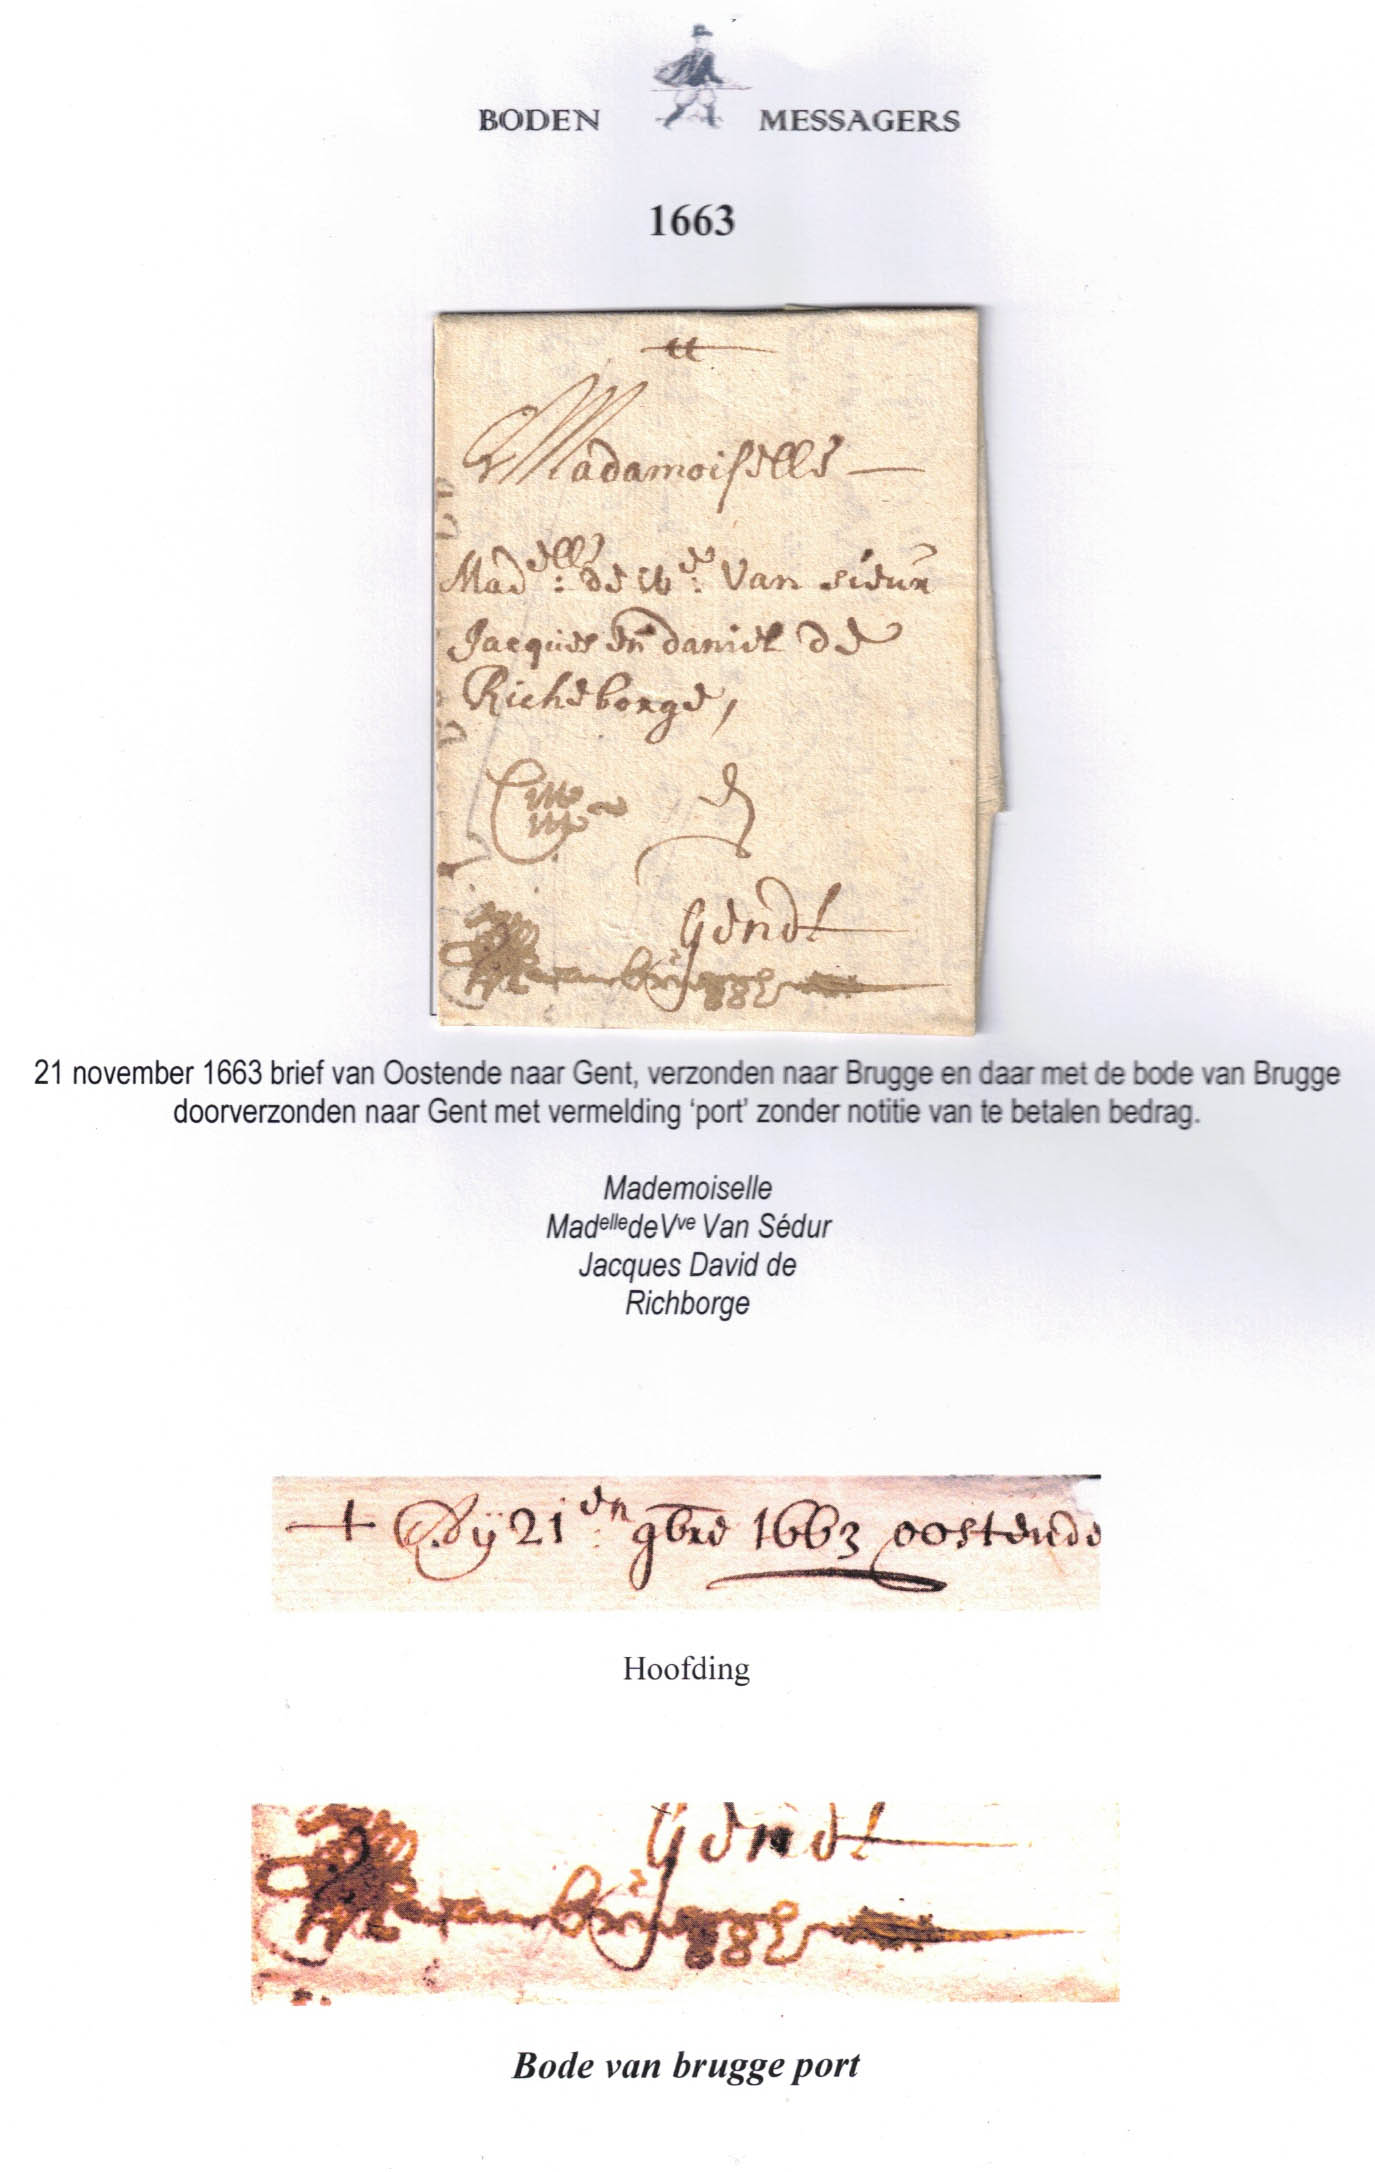 BODEN MESSAGERS
1663
Madamoiselle
Mad elle : de We : Van sieur
Jacques en daniel de
Richeborge,
Gendt
brugghe
21 november 1663 brief van Oostende naar Gent, verzonden naar Brugge en daar met de bode van Brugge
doorverzonden naar Gent met vermelding ‘port’ zonder notitie van te betalen bedrag.
Mademoiselle
MadelledeVve Van Sédur
Jacques David de
Richborge
Adij 21 en 9bre 1663 oostende
Hoofding
Gendt
brugghe
Bode van brugge port